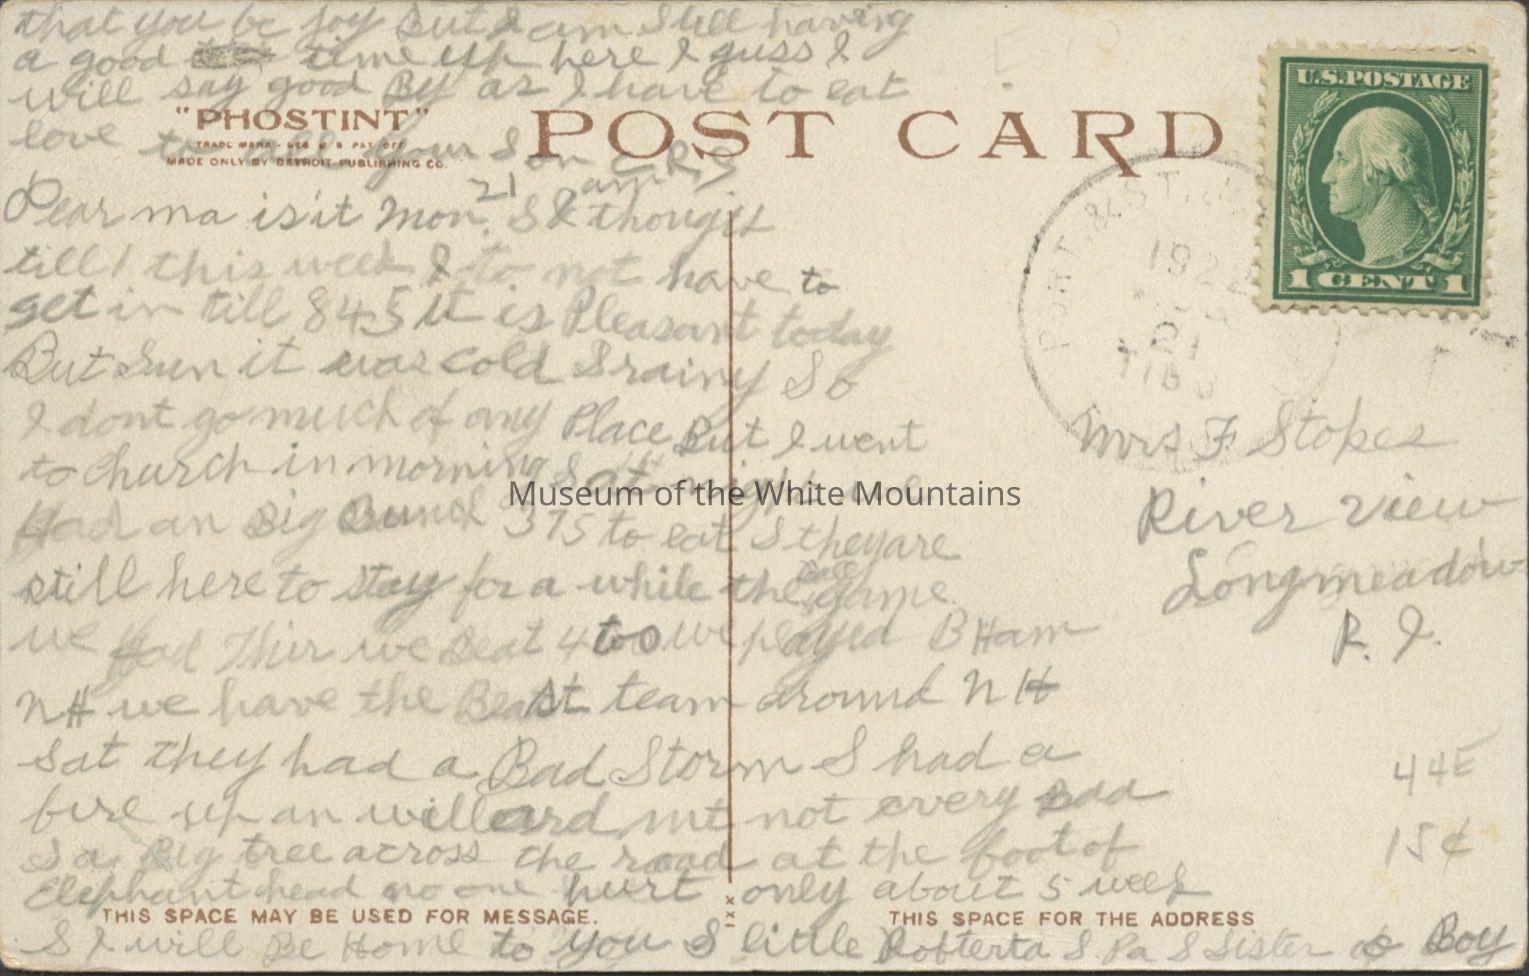 that you be joy But I am Still having
a good time up here I guss I
will say good By as I have to eat
love to all your Son C.R.S
"PHOSTINT"
TRADE MARK - REG U S PAT OFF
MADE ONLY BY DETROIT PUBLISHING CO.
POST CARD
U.S. POSTAGE
1 CENT 1
1922
21
Dear ma is it Mon. 21 S I am though
till this week I to not have to
get in till 845 it is Pleasant today
But Sun it was cold S rainy So
I dont go much of any Place But I went
to church in morning S at night we
Had an Big Bunch 375 to eat S they are
still here to stay for a while the Base game
we Had Thir we Beat 4 to 0 we played B Ham
NH we have the Beast team around NH
Sat they had a Bad Storm S had a
fire up an willeard mt not every Bad
S a Big tree across the road at the foot of
Elephant head no one hurt only about 5 week
S I will Be Home to you S little Robterta S. Pa S Sister Boy
Mrs F Stokes
River view
Longmeadow
R. I.
44E
15¢
THIS SPACE MAY BE USED FOR MESSAGE.
THIS SPACE FOR THE ADDRESS
Museum of the White Mountains